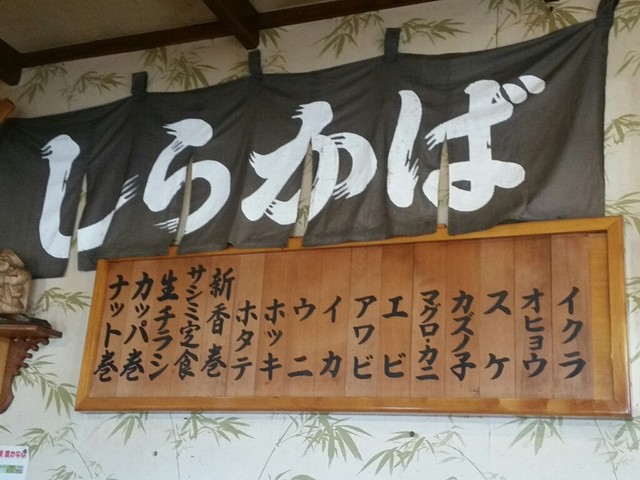 しらかば
イクラ
オヒョウ
スケ
カズノ子
マグロ・カニ
エビ
アワビ
イカ
ウニ
ホッキ
ホタテ
新香巻
サシミ定食
生チラシ
カッパ巻
ナット巻